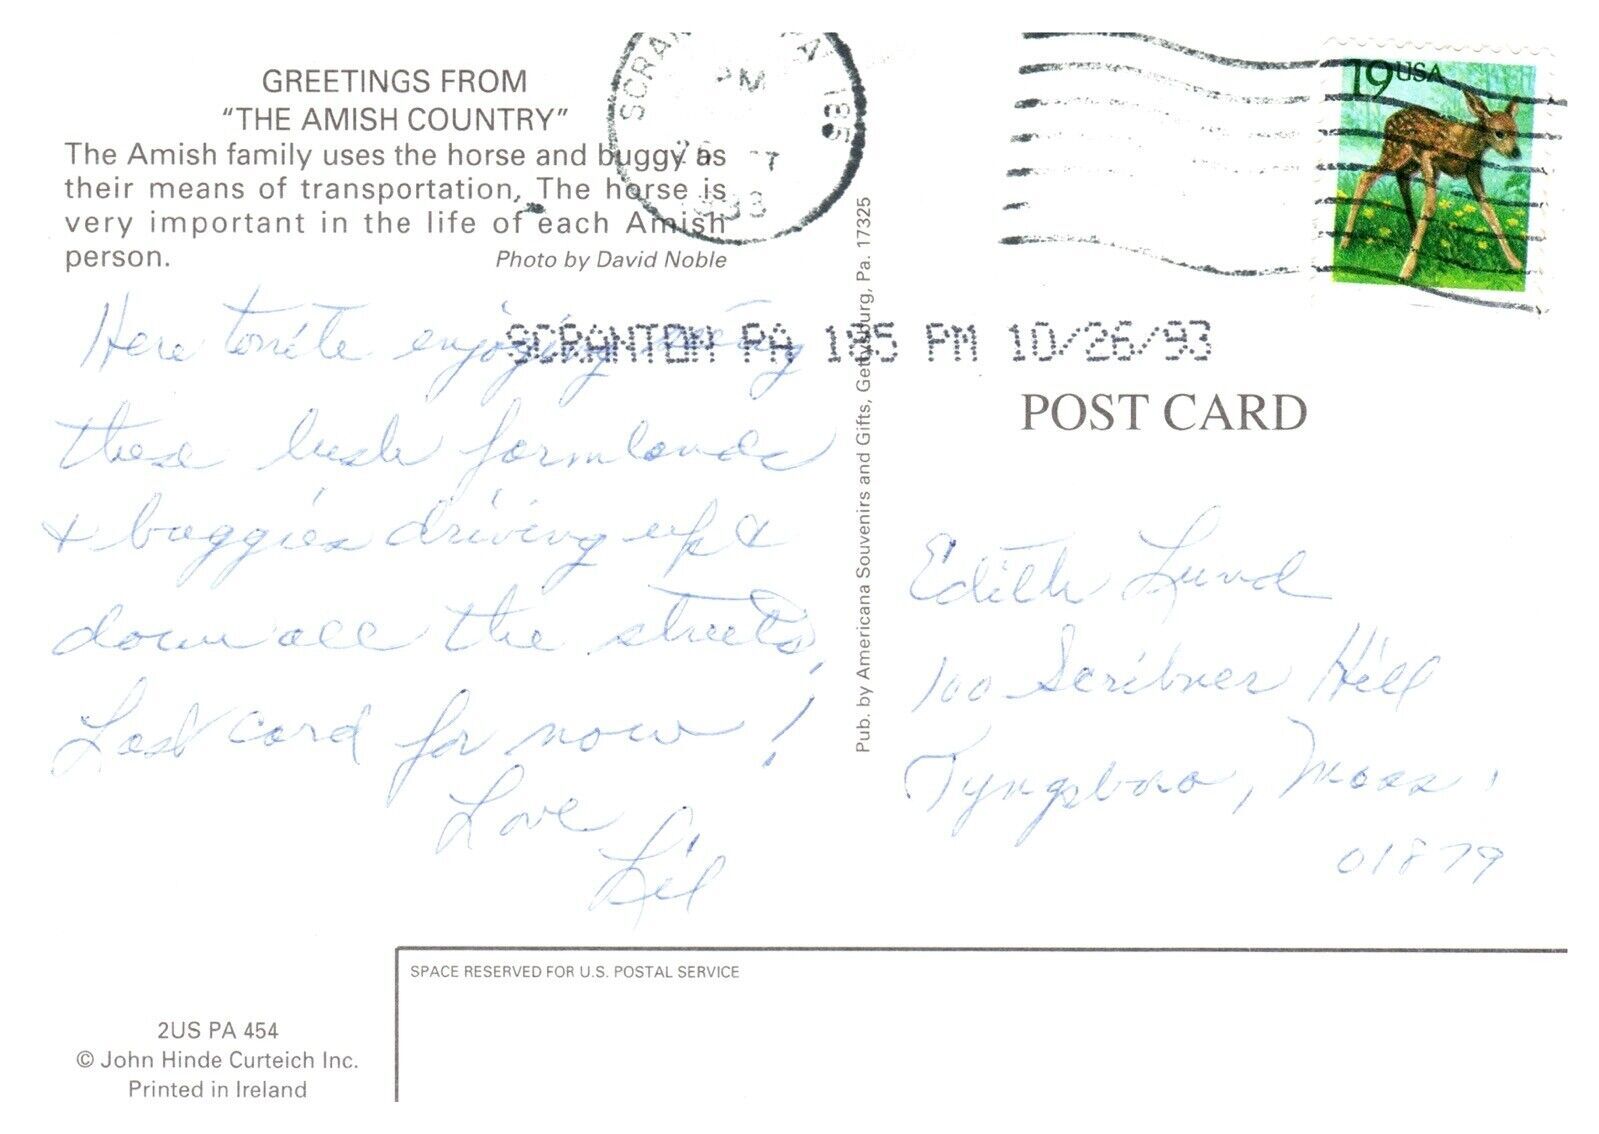 GREETINGS FROM
"THE AMISH COUNTRY"
The Amish family uses the horse and buggy as
their means of transportation. The horse is
very important in the life of each Amish
person.
Photo by David Noble
Here tonite enjoying seeing
these lush farmlands
& buggies driving up &
down all the streets.
Last card for now!
Love
Lil
2US PA 454
© John Hinde Curteich Inc.
Printed in Ireland
SPACE RESERVED FOR U.S. POSTAL SERVICE
Pub. by Americana Souvenirs and Gifts, Gettysburg, Pa. 17325
PA 185
PM
26
1993
SCRANTON PA 185 PM 10/26/93
19 USA
POST CARD
Edith Lund
100 Scribner Hill
Tyngsboro, Mass.
01879